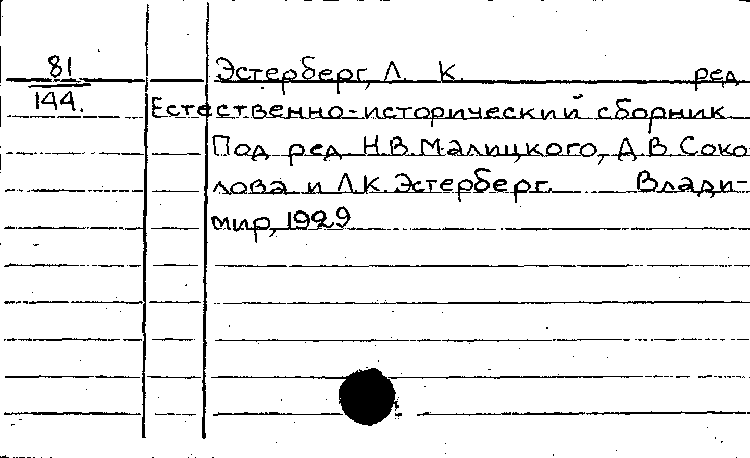 81 Эстерберг, Л. К. ред
144. Естественно-исторический сборник
Под ред. Н.В. Малицкого, Д.В. Соко
лова и Л.К. Эстерберг. Влади-
мир, 1929